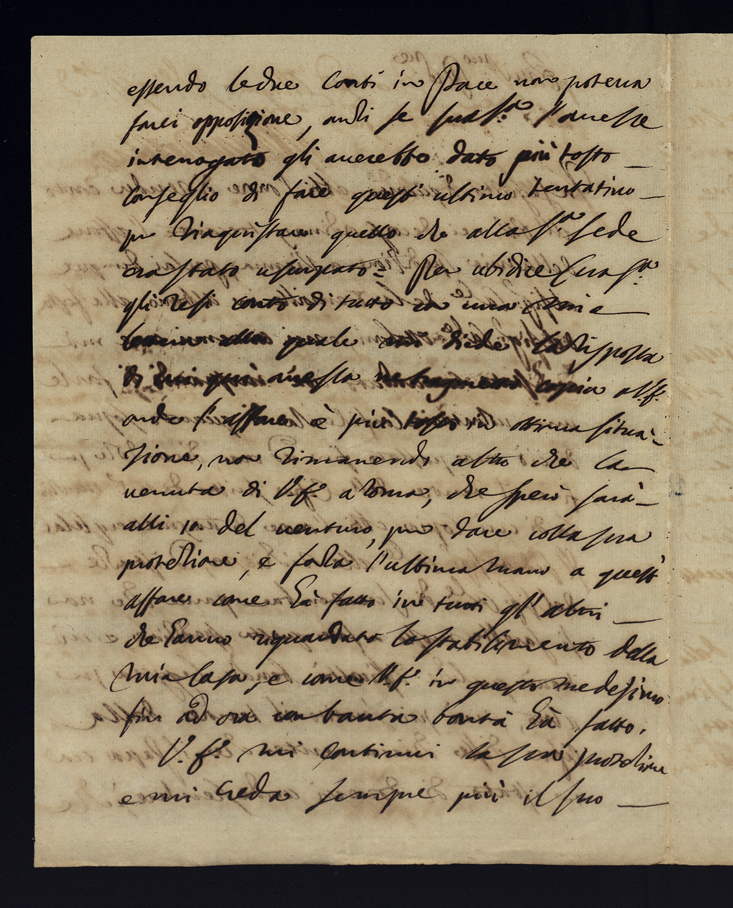 essendo le due Corti in Pace non poteva
farci opposizione, anzi se sua S.tà l'avesse
interrogato gli averebbe dato più tosto
Conseglio di fare quest'ultimo tentativo
per riaquistare quello che alla S.ta Sede
era stato usurpato. Per ubidire Sua S.tà
gli resi conto di tutto in una
alla quale diede la risposta
di copia a V.E.
onde l'affare è più tosto in ottima situa-
zione, non rimanendo altro che la
venuta di V.E. a Roma, che spero sarà
alli 10 del venturo, per dare colla sua
protezione, e forza l'ultima mano a quest'
affare come hà fatto in tutti gl'altri
che hanno riguardato lo stabilimento della
mia Casa, e come V.E. in questo medesimo
fin ad ora con tanta bontà hà fatto.
V.E. mi continui la sua protezione
e mi creda sempre più il suo